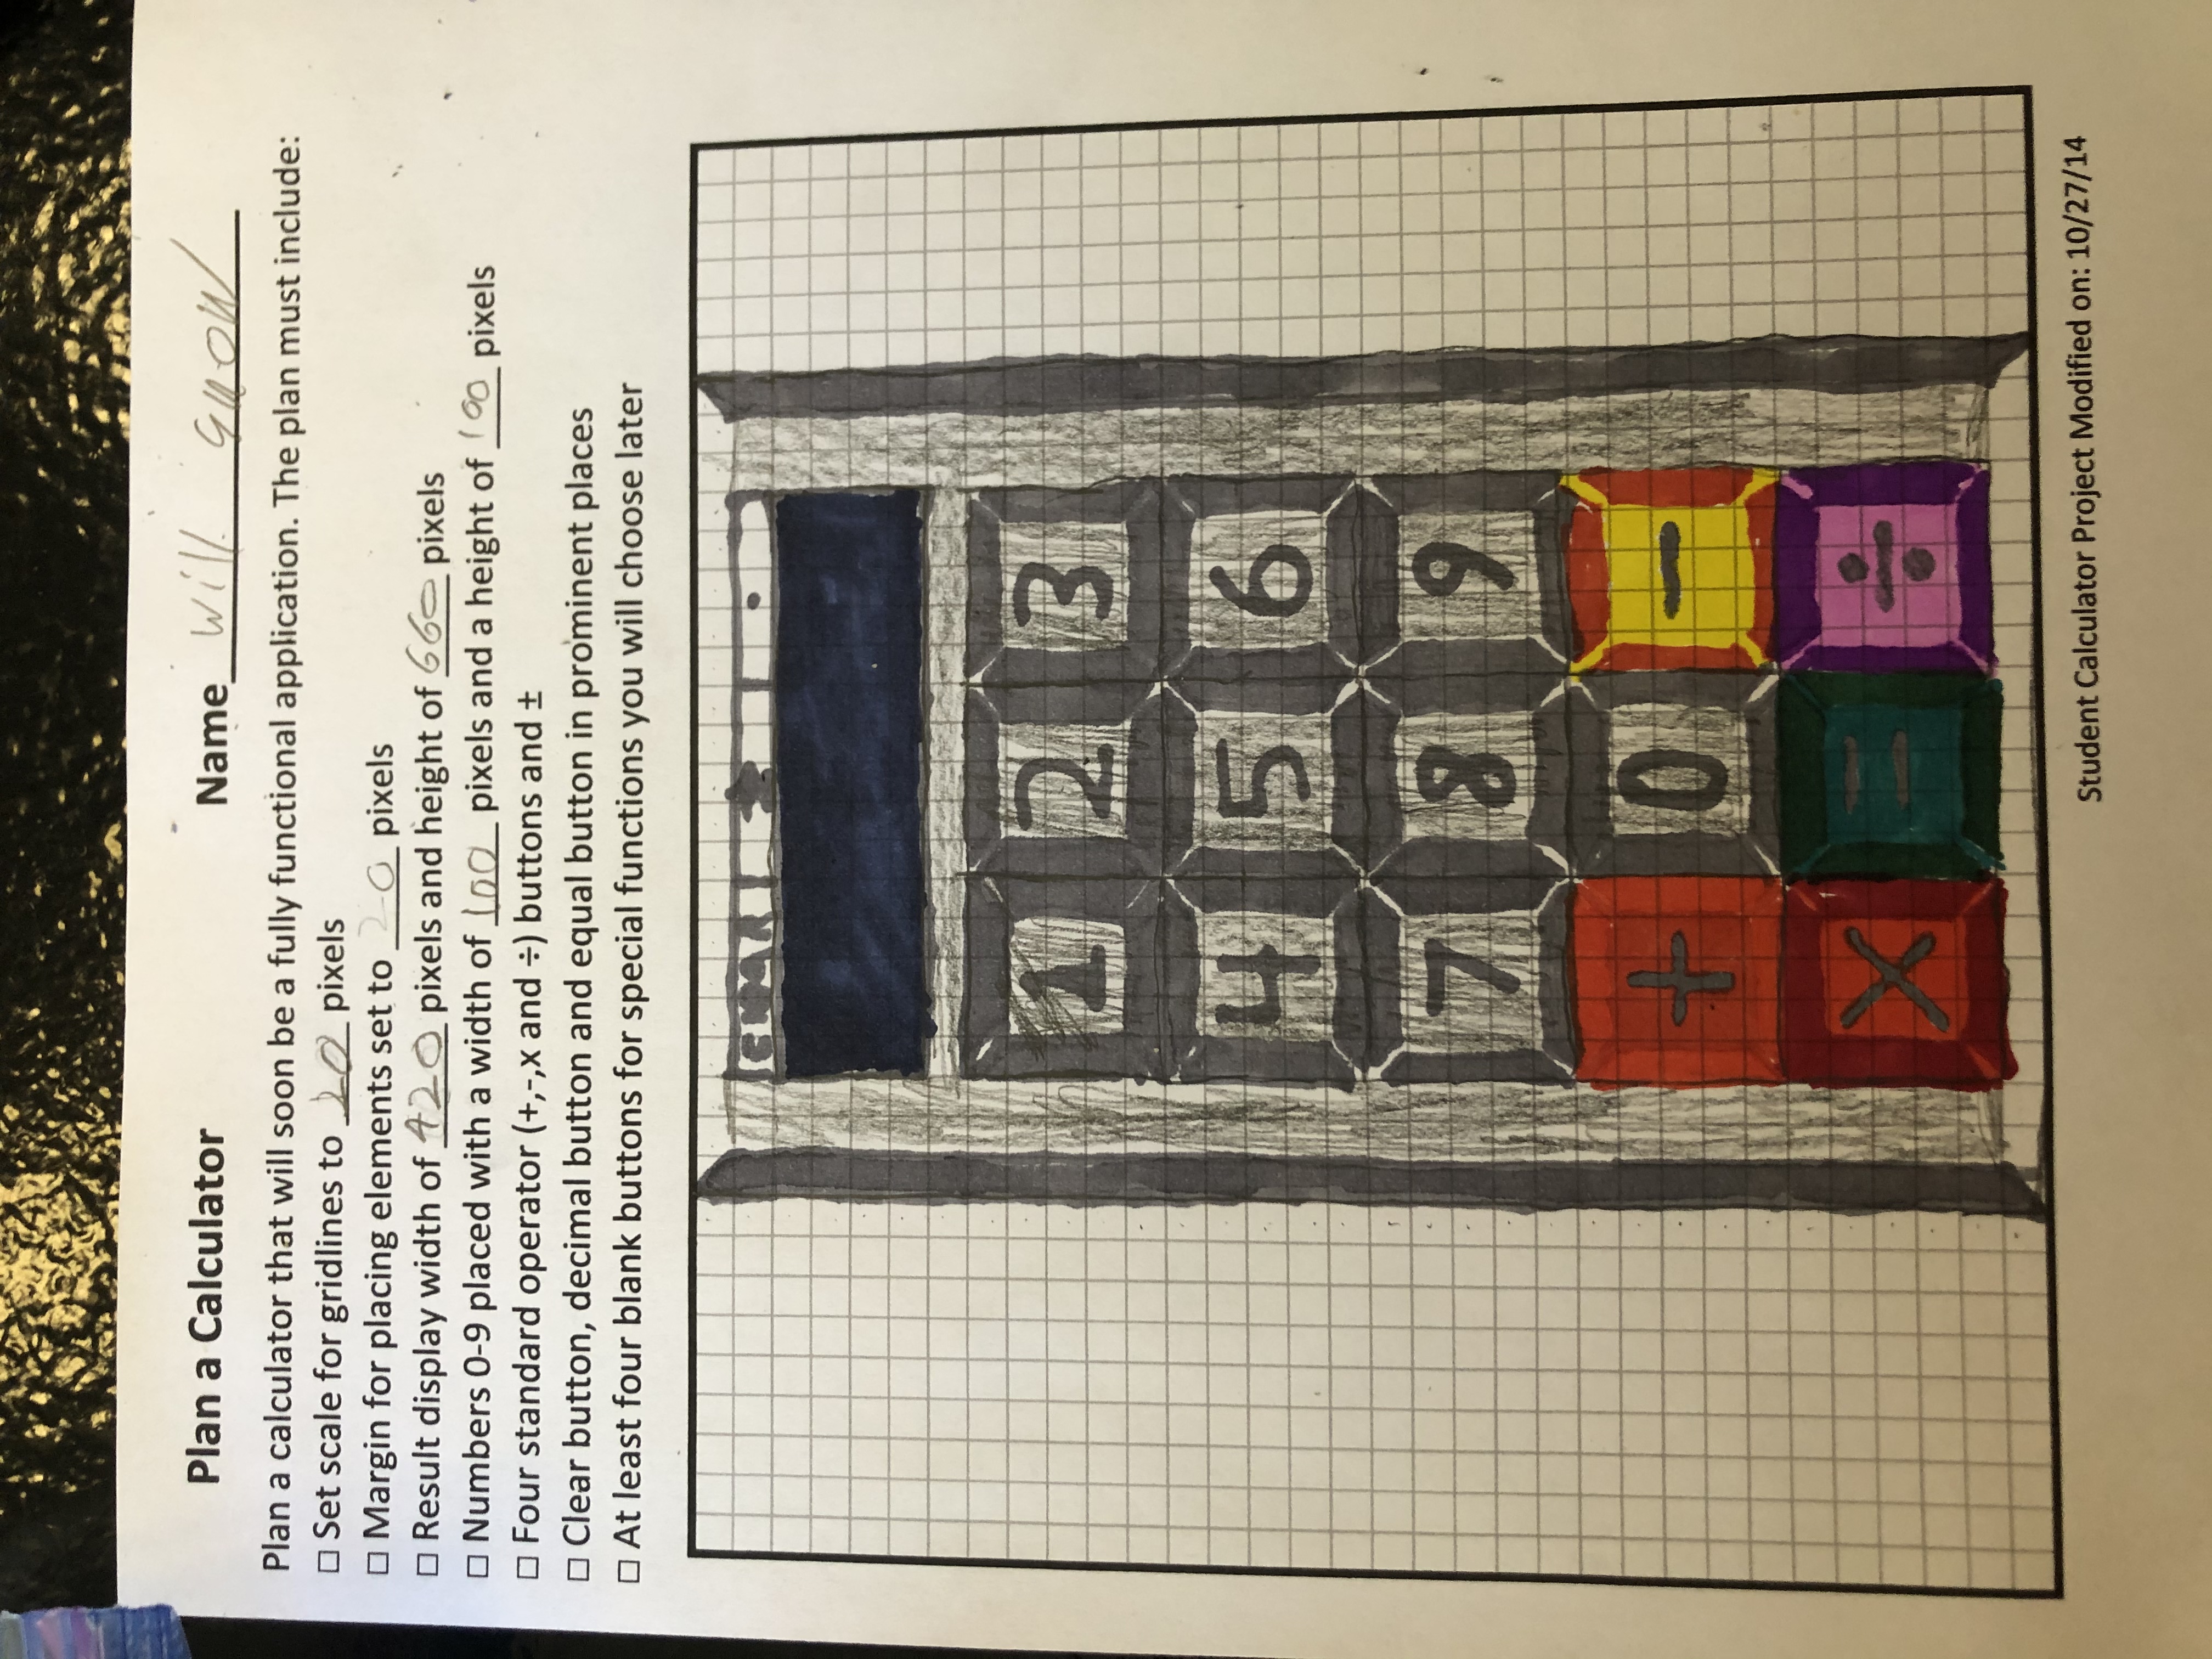 Plan a Calculator Name will snow
Plan a calculator that will soon be a fully functional application. The plan must include:
□ Set scale for gridlines to 20 pixels
□ Margin for placing elements set to 20 pixels
□ Result display width of 420 pixels and height of 660 pixels
□ Numbers 0-9 placed with a width of 100 pixels and a height of 100 pixels
□ Four standard operator (+,-,x and ÷) buttons and ±
□ Clear button, decimal button and equal button in prominent places
□ At least four blank buttons for special functions you will choose later
± .
1 2 3
4 5 6
7 8 9
+ 0 -
× = ÷
Student Calculator Project Modified on: 10/27/14